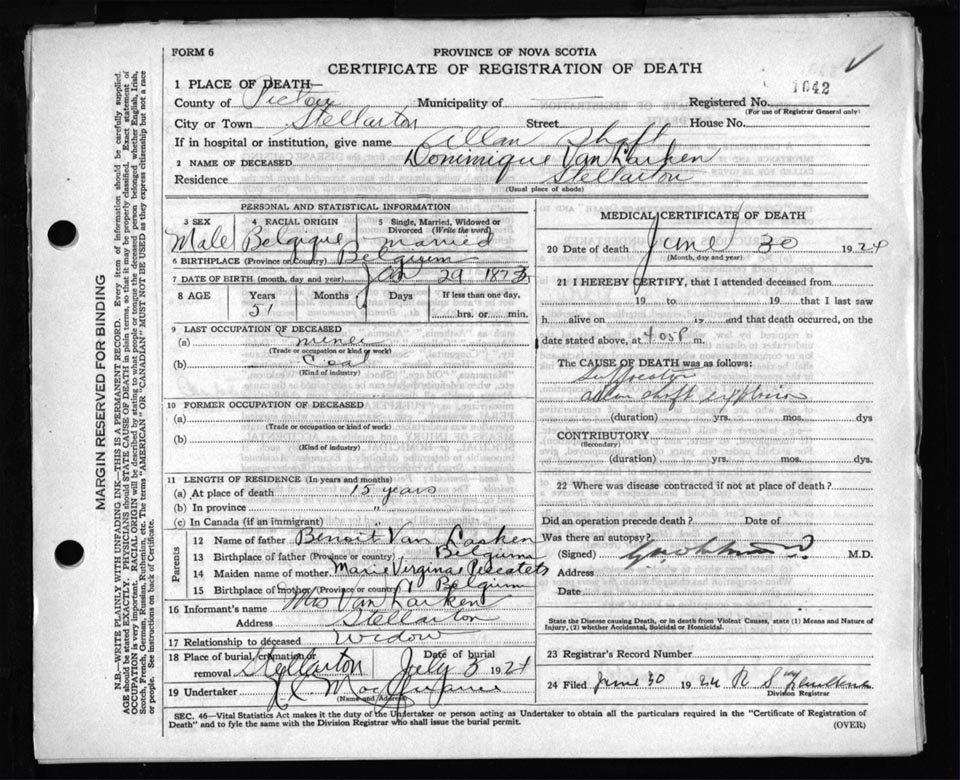 FORM 6
PROVINCE OF NOVA SCOTIA
CERTIFICATE OF REGISTRATION OF DEATH
1 PLACE OF DEATH—
County of Pictou Municipality of — Registered No. 1642
(For use of Registrar General only)
City or Town Stellarton Street House No.
If in hospital or institution, give name Allan Shaft
2 NAME OF DECEASED Dominique Van Larken
Residence Stellarton
(Usual place of abode)
MARGIN RESERVED FOR BINDING
N.B.—WRITE PLAINLY WITH UNFADING INK—THIS IS A PERMANENT RECORD. Every item of information should be carefully supplied.
AGE should be stated EXACTLY. PHYSICIANS should STATE CAUSE OF DEATH in plain terms, so that it may be properly classified. Exact statement of
OCCUPATION is very important. RACIAL ORIGIN will be described by stating to what people or tongue the deceased person belonged whether English, Irish,
Scotch, French, German, Russian, Ruthenian, etc. The terms "AMERICAN" OR "CANADIAN" MUST NOT BE USED as they express citizenship but not a race
or people. See instructions on back of Certificate.
PERSONAL AND STATISTICAL INFORMATION
3 SEX 4 RACIAL ORIGIN 5 Single, Married, Widowed or
Divorced (Write the word)
Male Belgique married
6 BIRTHPLACE (Province or Country) Belgium
7 DATE OF BIRTH (month, day and year) Jan 29 1873
8 AGE Years Months Days If less than one day,
51 hrs. or min.
9 LAST OCCUPATION OF DECEASED
(a) miner
(Trade or occupation or kind of work)
(b) Coal
(Kind of industry)
10 FORMER OCCUPATION OF DECEASED
(a)
(Trade or occupation or kind of work)
(b)
(Kind of industry)
11 LENGTH OF RESIDENCE (In years and months)
(a) At place of death 15 years
(b) In province "
(c) In Canada (if an immigrant) "
Parents
12 Name of father Benoit Van Larken
13 Birthplace of father (Province or country) Belgium
14 Maiden name of mother Marie Virginae
15 Birthplace of mother (Province or country) Belgium
16 Informant's name Mrs Van Larken
Address Stellarton
17 Relationship to deceased Widow
18 Place of burial, cremation or
removal Stellarton July 3 1924
19 Undertaker
(Name and Address)
MEDICAL CERTIFICATE OF DEATH
20 Date of death June 30 1924
(Month, day and year)
21 I HEREBY CERTIFY, that I attended deceased from
19 to 19 that I last saw
h alive on 19 and that death occurred, on the
date stated above, at 4 05 P m.
The CAUSE OF DEATH was as follows:
Suffocation
Allan shaft explosion
(duration) yrs. mos. dys
CONTRIBUTORY
(Secondary)
(duration) yrs. mos. dys
22 Where was disease contracted if not at place of death?
Did an operation precede death? Date of
Was there an autopsy?
(Signed) M.D.
Address
Date
State the Disease causing Death, or in death from Violent Causes, state (1) Means and Nature of
Injury, (2) whether Accidental, Suicidal or Homicidal.
23 Registrar's Record Number
24 Filed June 30 1924 R S
Division Registrar
SEC. 46—Vital Statistics Act makes it the duty of the Undertaker or person acting as Undertaker to obtain all the particulars required in the "Certificate of Registration of
Death" and to fyle the same with the Division Registrar who shall issue the burial permit.
(OVER)